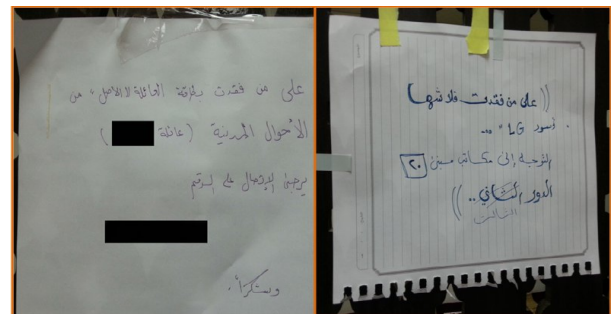 على من فقدت بطاقة العائلة الأصل، من
الأحوال المدنية (عائلة )
يرجى الإتصال على الرقم
وشكراً.
((على من فقدت فلاشها
أسود LG "...
التوجه إلى مكاتب مبنى ٢٠
الدور الثاني.. ))
الثالث